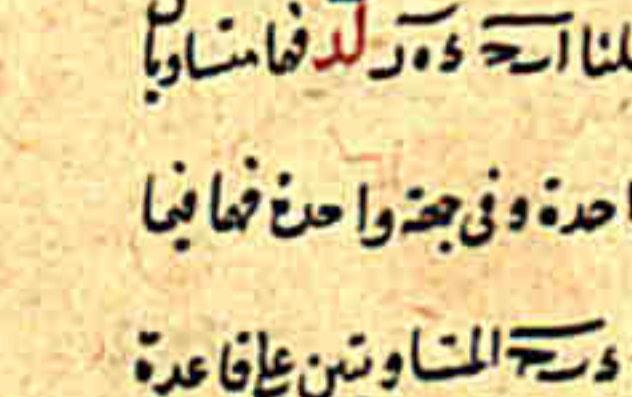 ا ب ح ء ه ر لد فهما متساويا
احدة و فى جهة واحدة فهما فيما
ء ب ح المتساويتين على قاعدة